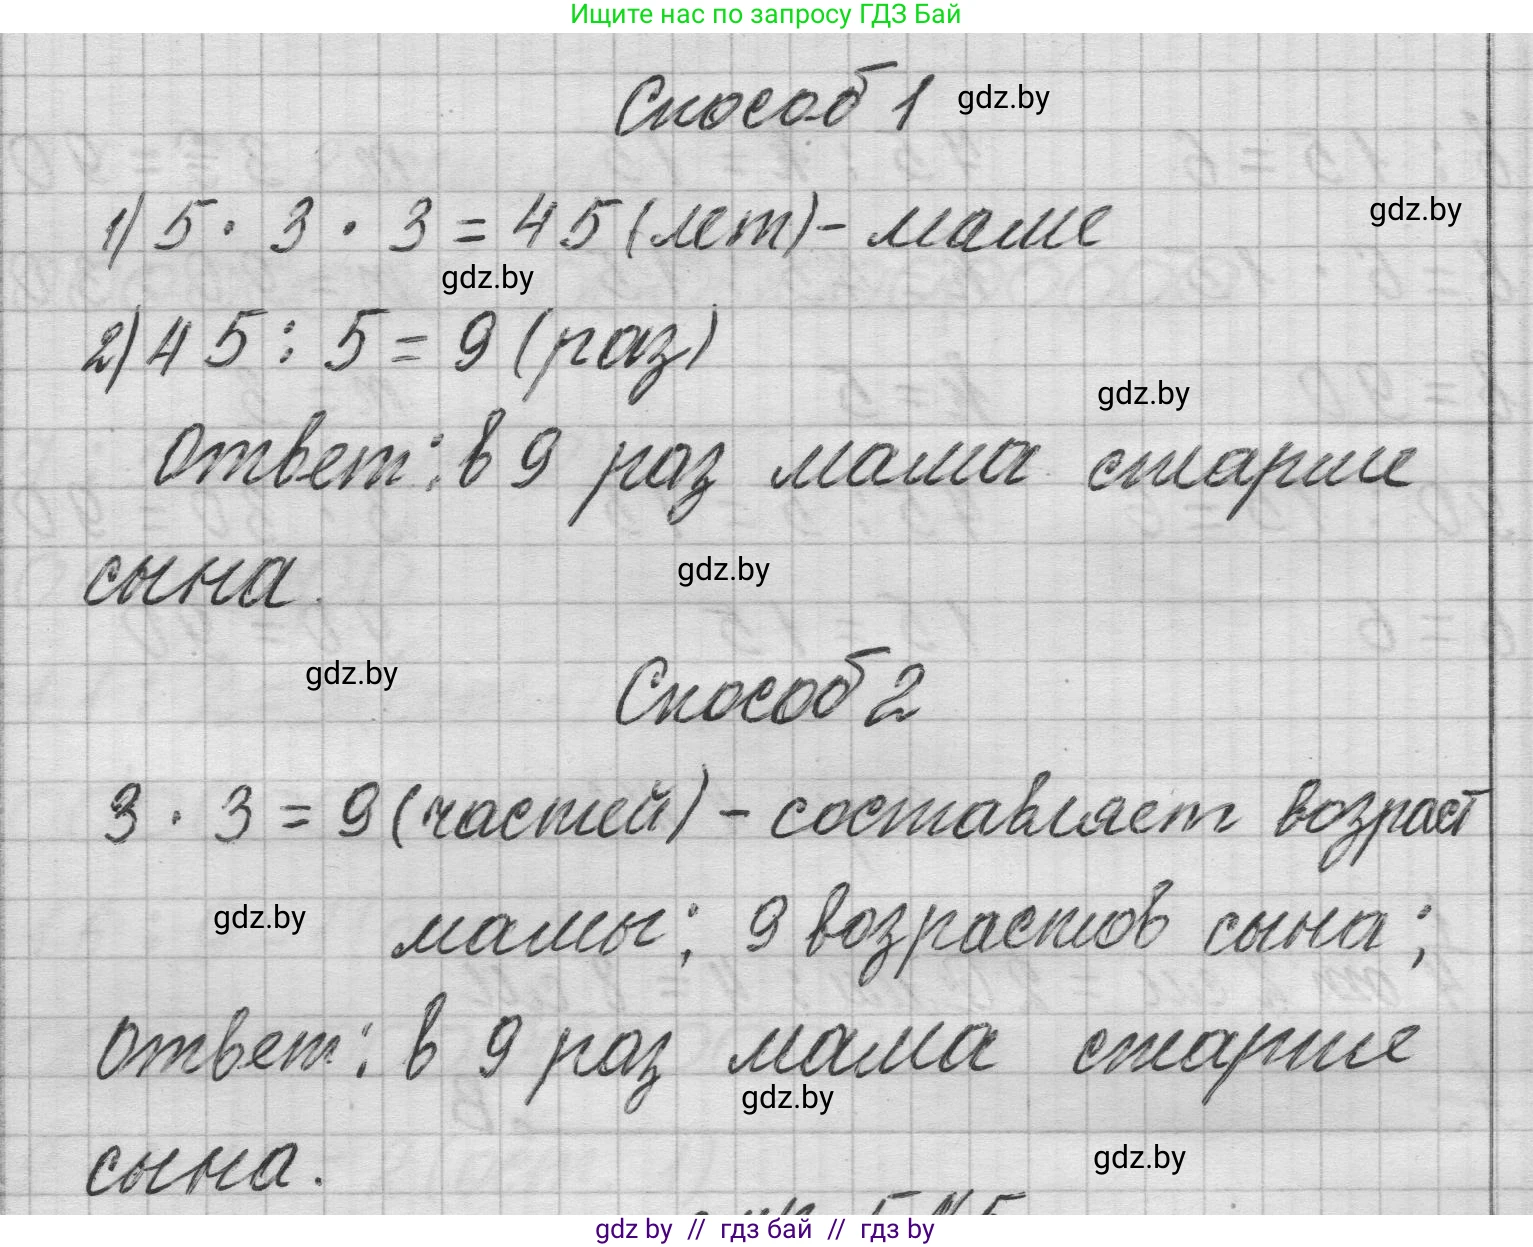 Ищите нас по запросу ГДЗ Бай
Способ 1 gdz.by
1) 5 · 3 · 3 = 45 (лет) - маме gdz.by
gdz.by
2) 45 : 5 = 9 (раз)
gdz.by
Ответ: в 9 раз мама старше
сына. gdz.by
gdz.by Способ 2
3 · 3 = 9 (частей) - составляет возраст
gdz.by мамы; 9 возрастов сына;
Ответ: в 9 раз мама старше
gdz.by
сына. gdz.by
gdz by // гдз бай // гдз by